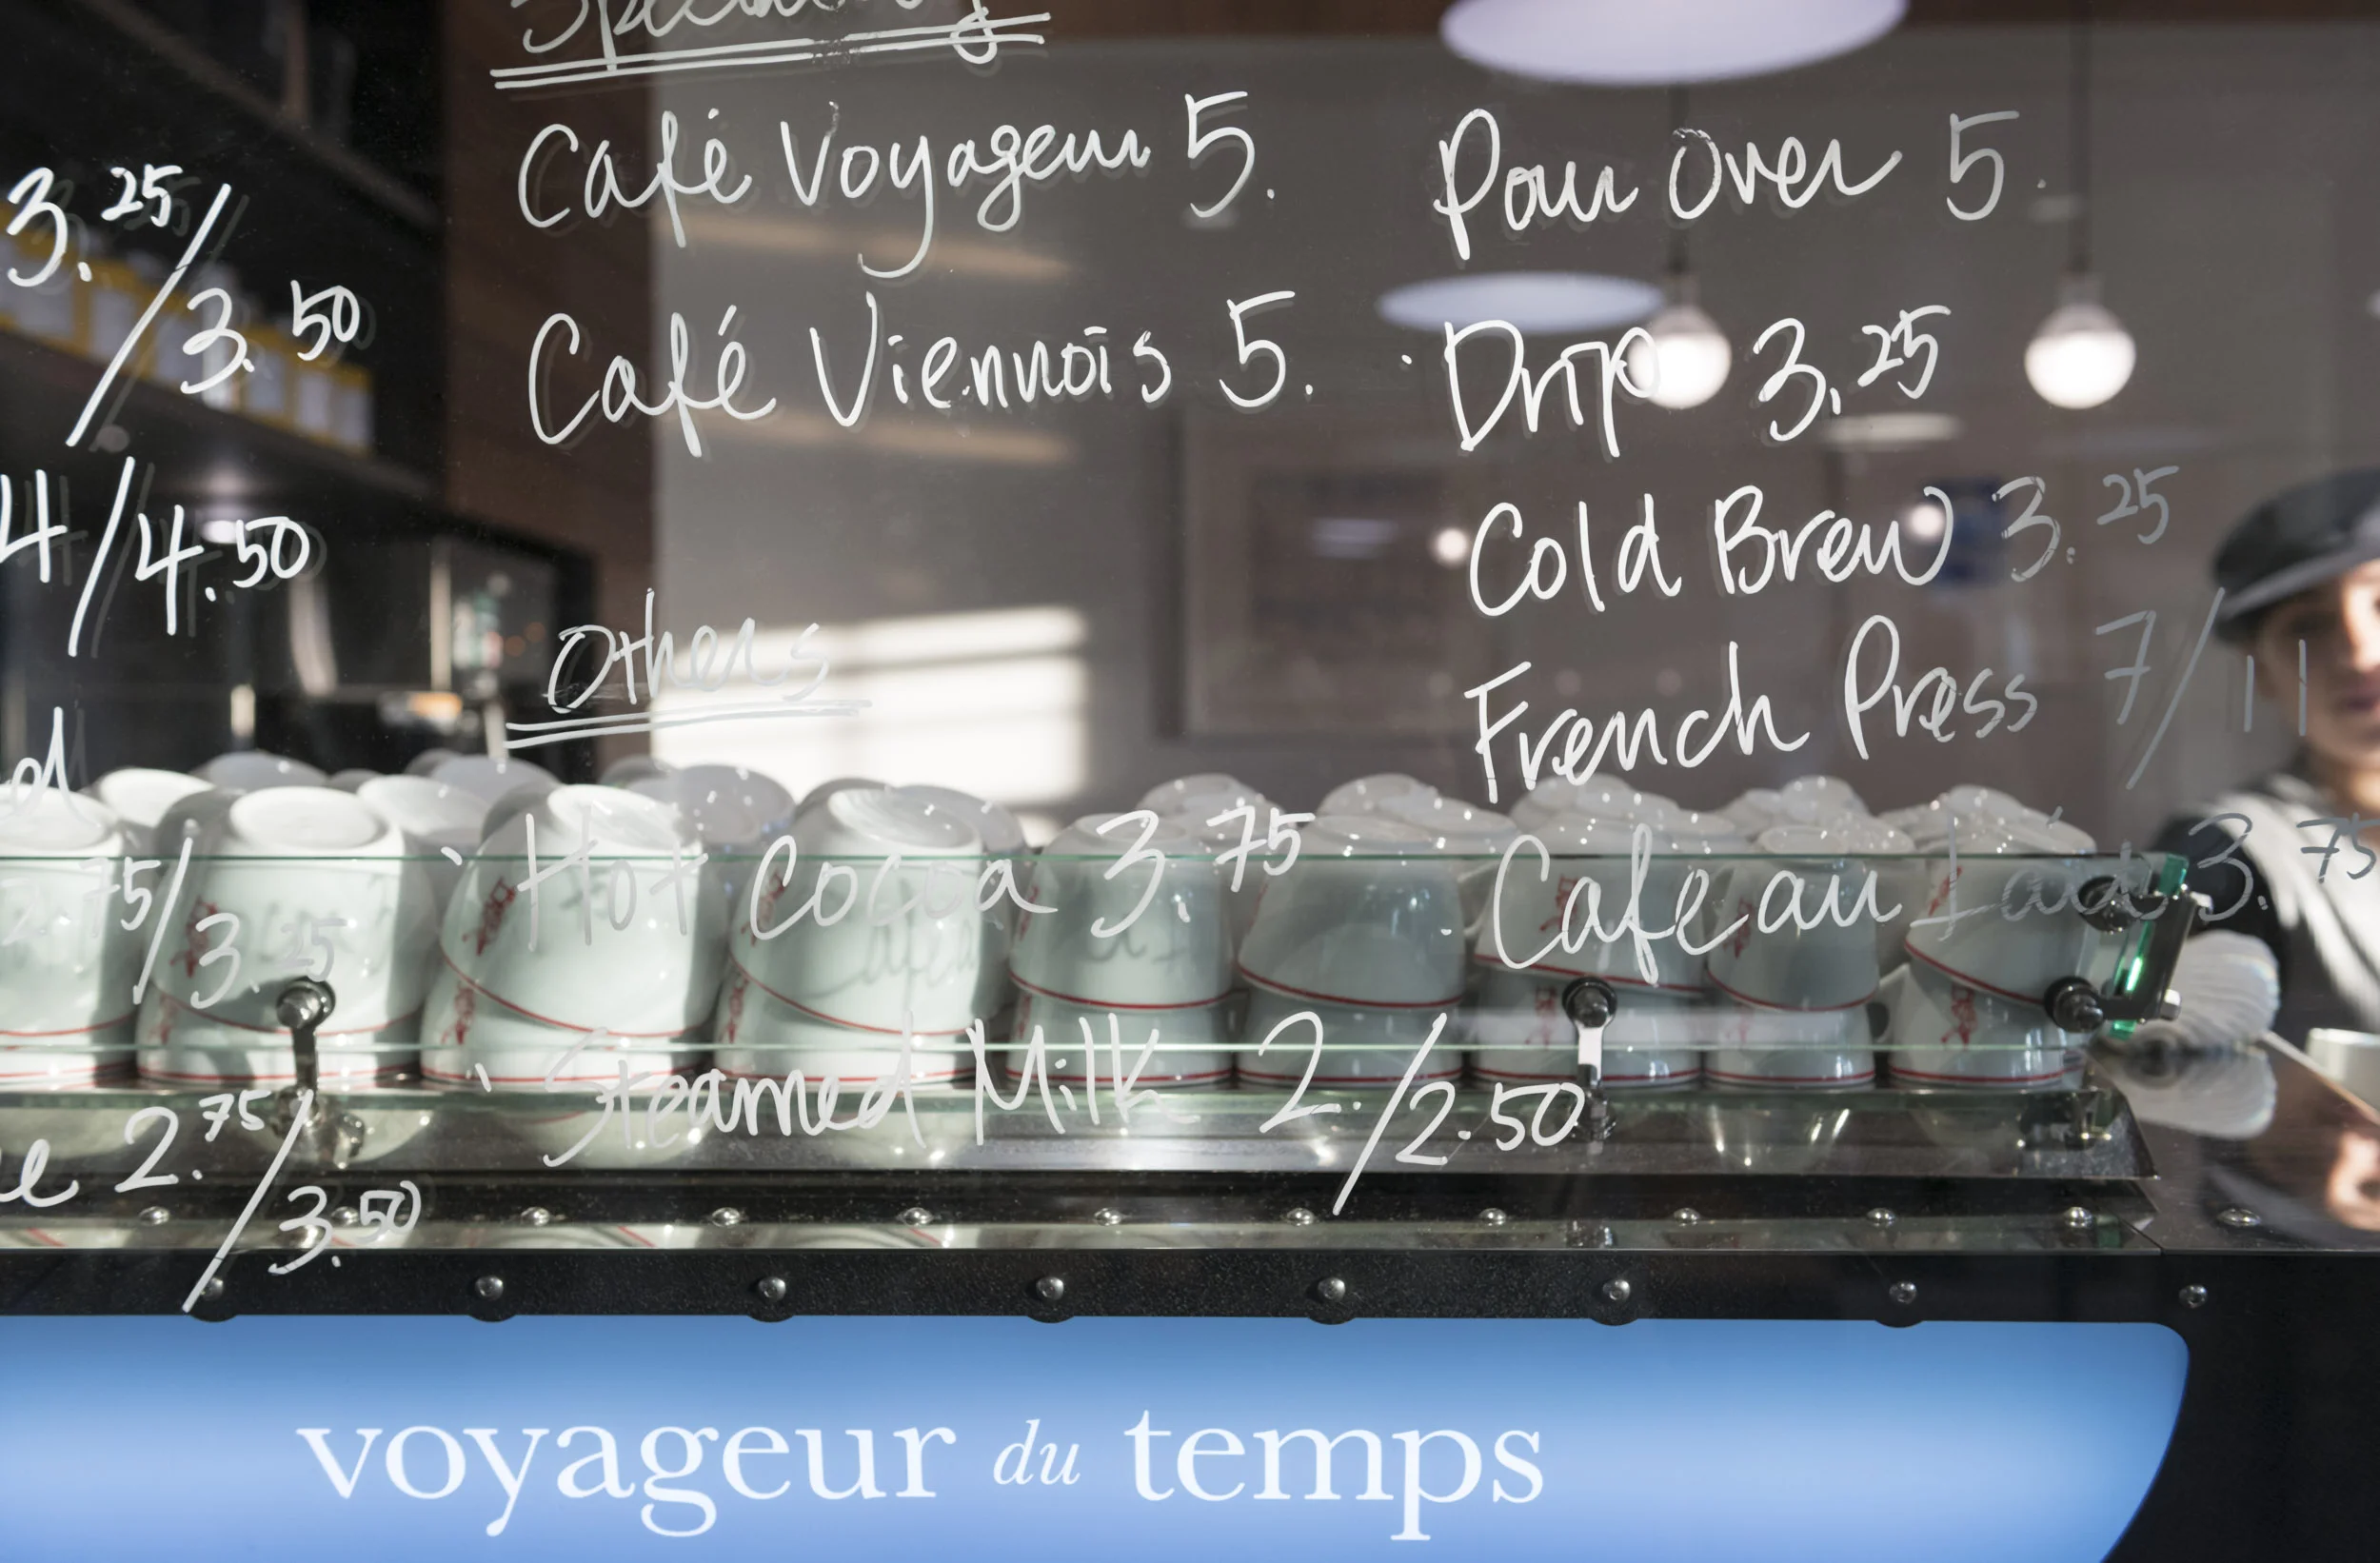 Specialty
3.25/3.50
4/4.50
d
2.75/3.25
e 2.75/3.50
Café Voyageur 5.
Café Viennois 5.
Others
Hot Cocoa 3.75
Steamed Milk 2./2.50
Pour Over 5.
Drip 3.25
Cold Brew 3.25
French Press 7/11
Cafe au Lait 3.75
voyageur du temps